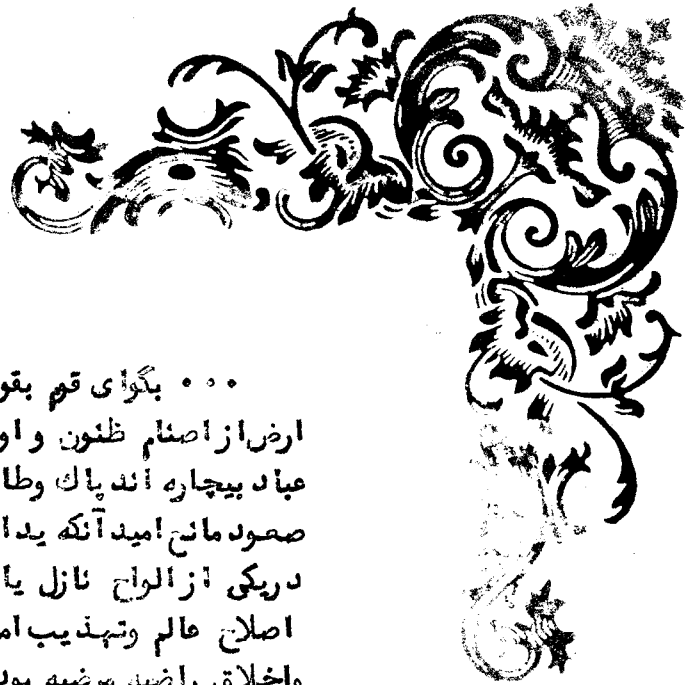 ۰۰۰ بگو ای قوم بقو
ارض از اصنام ظنون و او
عباد بیچاره اند پاك وطا
صعود مانع امید آنکه یدا
دریکی از الواح نازل یا
اصلاح عالم وتهذیب ام
واخلاق راضیه مرضیه بود